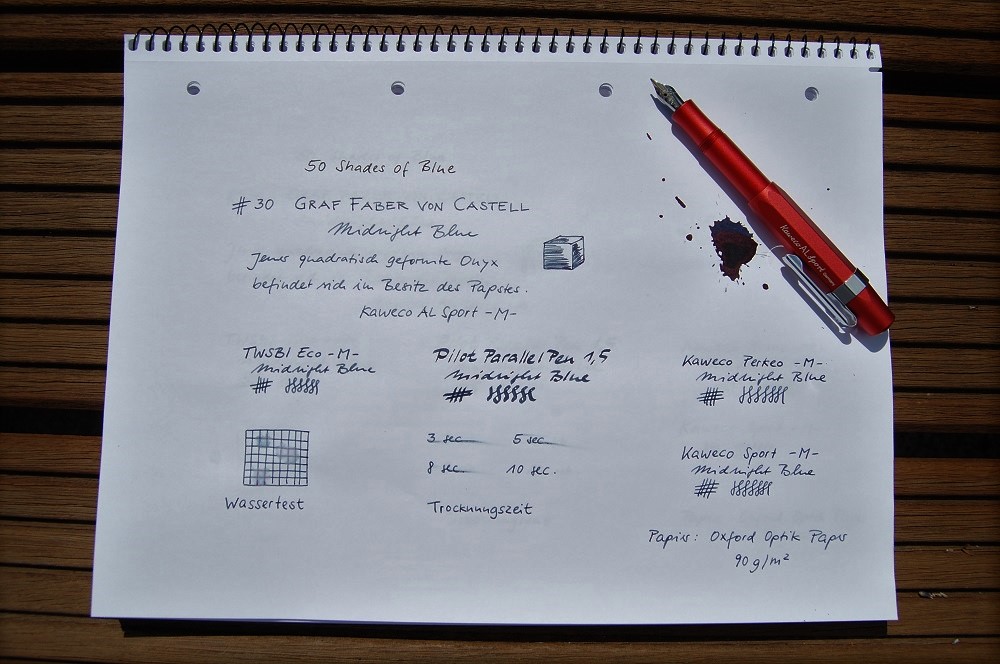 50 Shades of Blue
#30 GRAF FABER VON CASTELL
Midnight Blue
Jener quadratisch geformte Onyx
befindet sich im Besitz des Papstes.
Kaweco AL Sport -M-
TWSBI Eco -M-
Midnight Blue
Pilot Parallel Pen 1,5
Midnight Blue
Kaweco Perkeo -M-
Midnight Blue
3 sec. 5 sec.
8 sec. 10 sec.
Kaweco Sport -M-
Midnight Blue
Wassertest
Trocknungszeit
Papier: Oxford Optik Paper
90 g/m²
Kaweco AL Sport